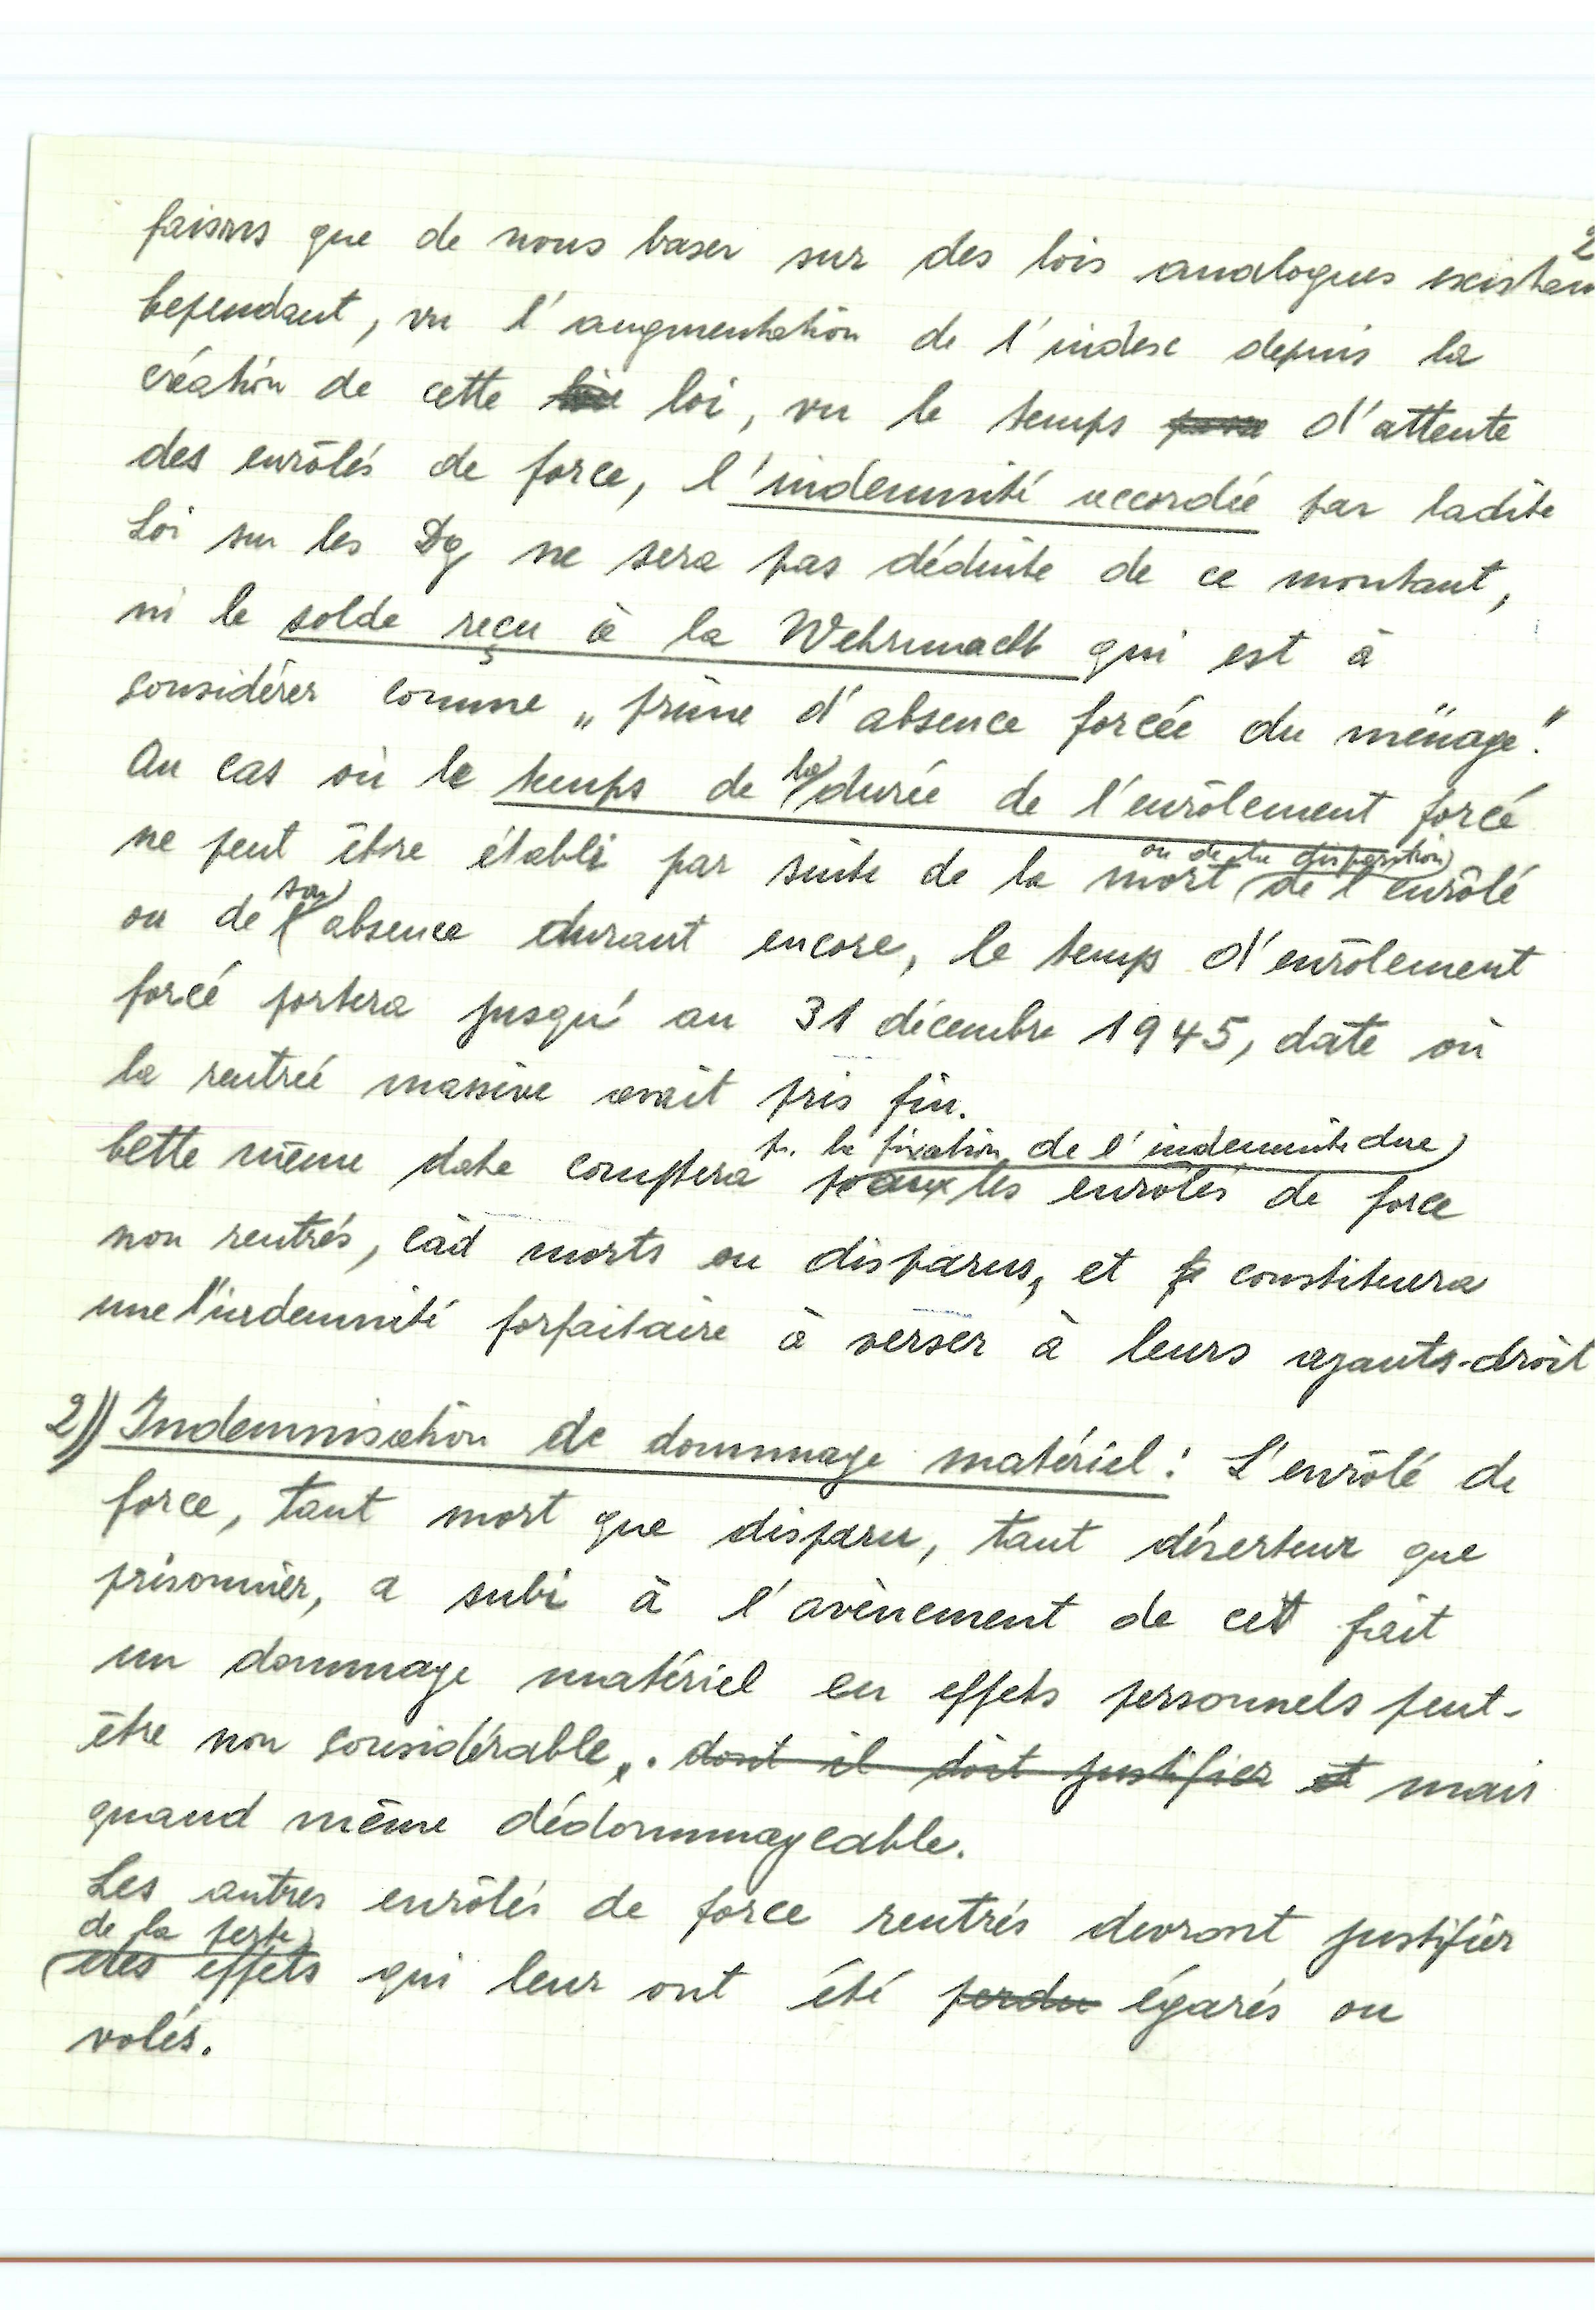 2
faisons que de nous baser sur des lois analogues existan
Cependant, vu l'augmentation de l'index depuis la
création de cette loi, vu le temps d'attente
des enrôlés de force, l'indemnité accordée par ladite
Loi sur les Dg ne sera pas déduite de ce montant,
ni le solde reçu à la Wehrmacht qui est à
considérer comme „prime d'absence forcée du ménage".
Au cas où le temps de la durée de l'enrôlement forcé
ou de la disparition
ne peut être établi par suite de la mort de l'enrôlé
ou de son absence durant encore, le temps d'enrôlement
forcé portera jusqu'au 31 décembre 1945, date où
la rentrée massive avait pris fin.
p. la fixation de l'indemnité due
Cette même date comptera aux les enrôlés de force
non rentrés, càd morts ou disparus, et constituera
une l'indemnité forfaitaire à verser à leurs ayants-droit
2)) Indemnisation de dommage matériel: L'enrôlé de
force, tant mort que disparu, tant déserteur que
prisonnier, a subi à l'avènement de cet fait
un dommage matériel en effets personnels peut-
être non considérable, dont il doit justifier et mais
quand même dédommageable.
Les autres enrôlés de force rentrés devront justifier
de la perte
des effets qui leur ont été perdu égarés ou
volés.